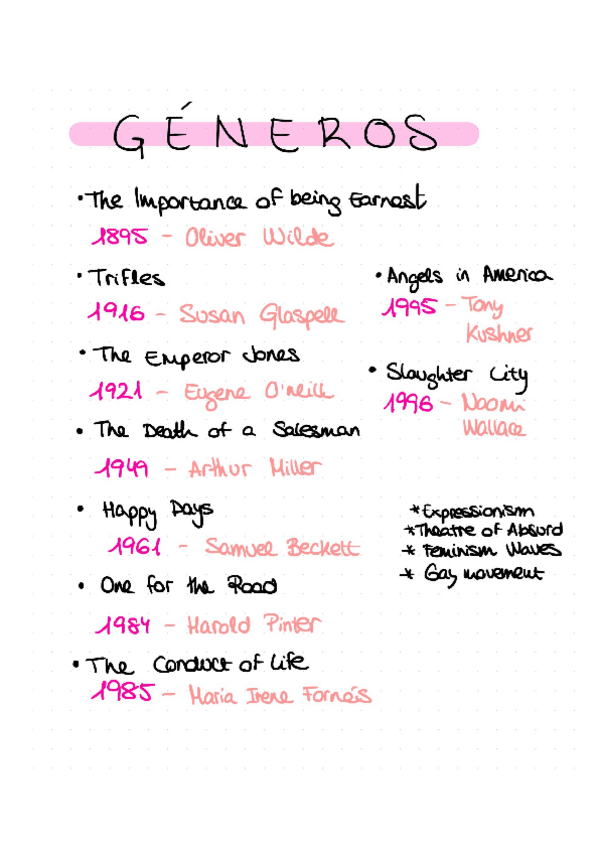 GÉNEROS
• The Importance of being Earnest
1895 - Oliver Wilde
• Trifles
1916 - Susan Glaspell
• The Emperor Jones
1921 - Eugene O'neill
• The Death of a Salesman
1949 - Arthur Miller
• Happy Days
1961 - Samuel Beckett
• One for the Road
1984 - Harold Pinter
• The Conduct of Life
1985 - Maria Irene Fornés
• Angels in America
1995 - Tony
Kushner
• Slaughter City
1996 - Naomi
Wallace
* Expressionism
* Theatre of Absurd
* Feminism Waves
* Gay movement